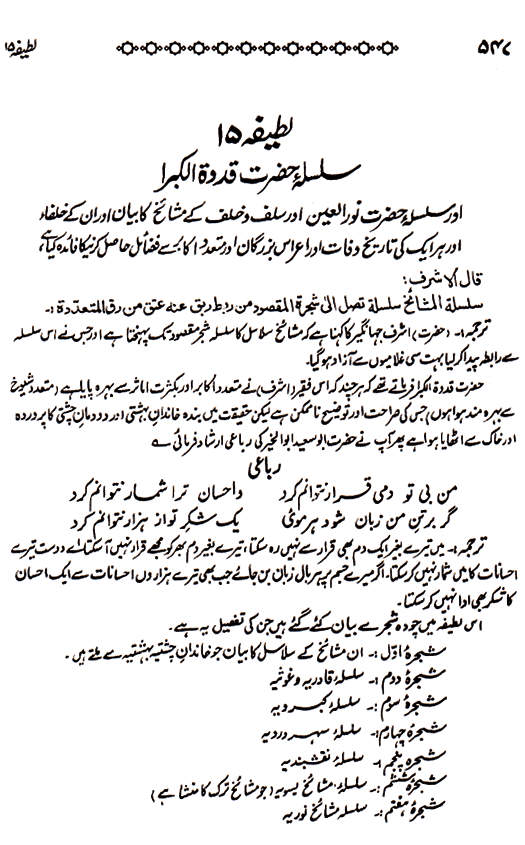 ۵۴۷ لطیفہ ۱۵
لطیفہ ۱۵
سلسلۂ حضرت قدوۃ الکبرا
اور سلسلۂ حضرت نور العین اور سلف و خلف کے مشائخ کا بیان اور ان کے خلفاء
اور ہر ایک کی تاریخ وفات اور اعراس بزرگان اور متعدد اکابر سے فضائل حاصل کرنیکا فائدہ کیا ہے
قال الاشرف:
سلسلۃ المشائخ سلسلۃ تصل الیٰ شجرۃ المقصود من ربط ربق عنہ عتق من رق المتعددۃ :۔
ترجمہ:۔ (حضرت) اشرف جہانگیر کا کہنا ہے کہ مشائخ سلاسل کا سلسلہ شجر مقصود تک پہنچتا ہے اور جس نے اس سلسلہ
سے رابطہ پیدا کر لیا بہت سی غلامیوں سے آزاد ہو گیا۔
حضرت قدوۃ الکبرا فرماتے تھے کہ ہر چند کہ اس فقیر (اشرف) نے متعدد اکابر اور بکثرت اماثر سے بہرہ پایا ہے (متعدد شیوخ
سے بہرہ مند ہوا ہوں) جس کی صراحت اور توضیح ناممکن ہے لیکن حقیقت میں بندہ خاندان بہشتی اور دودمانِ چشتی کا پروردہ
اور خاک سے اٹھایا ہوا ہے پھر آپ نے حضرت ابو سعید ابو الخیر کی رباعی ارشاد فرمائی ؎
رباعی
من بی تو دمی قرار نتوانم کرد واحسان ترا شمار نتوانم کرد
گر برتن من زبان شود ہر موئی یک شکر تو از ہزار نتوانم کرد
ترجمہ:۔ میں تیرے بغیر ایک دم بھی قرار سے نہیں رہ سکتا، تیرے بغیر دم بھر کو مجھے قرار نہیں آ سکتا اے دوست تیرے
احسانات کا میں شمار نہیں کر سکتا۔ اگر میرے جسم پر ہر بال زبان بن جائے جب بھی تیرے ہزاروں احسانات سے ایک احسان
کا شکر بھی ادا نہیں کر سکتا۔
اس لطیفہ میں چودہ شجرے بیان کئے گئے ہیں جن کی تفصیل یہ ہے۔
شجرۂ اوّل :۔ ان مشائخ کے سلاسل کا بیان جو خاندانِ چشتیہ بہشتیہ سے ملتے ہیں۔
شجرۂ دوم :۔ سلسلۂ قادریہ و غوثیہ
شجرۂ سوم :۔ سلسلۂ کبرویہ
شجرۂ چہارم :۔ سلسلۂ سہروردیہ
شجرۂ پنجم :۔ سلسلۂ نقشبندیہ
شجرۂ ششم :۔ سلسلۂ مشائخ یسویہ (جو مشائخ ترک کا منشا ہے)
شجرۂ ہفتم :۔ سلسلہ مشائخ نوریہ